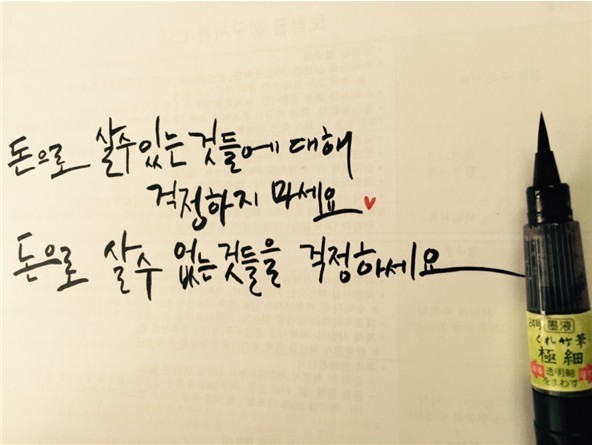 돈으로 살수있는 것들에 대해
걱정하지 마세요
돈으로 살수 없는것들을 걱정하세요
墨液
くれ竹筆
極細
透明軸
をまわす